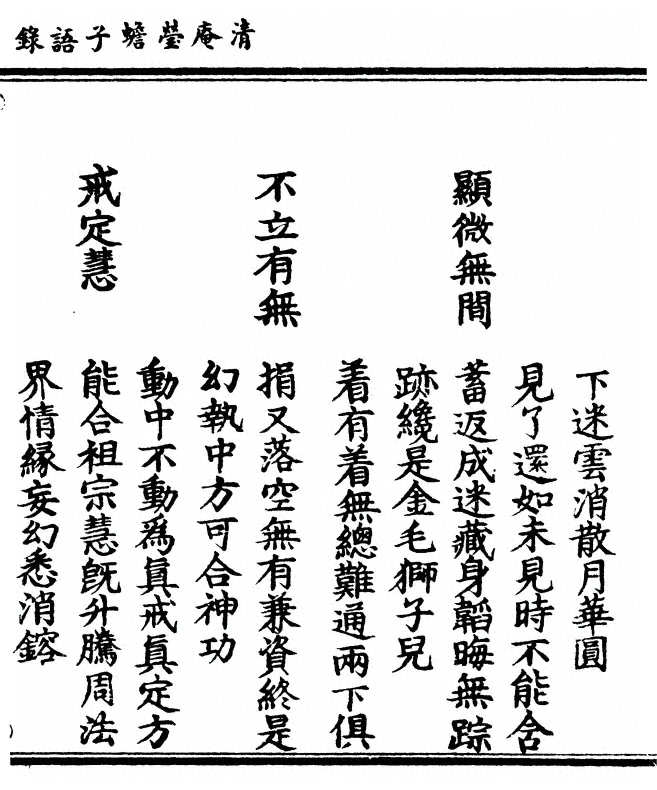 清庵瑩蟾子語錄
下迷雲消散月華圓
顯微無間
見了還如未見時不能含
蓄返成迷藏身韜晦無踪
跡纔是金毛獅子兒
不立有無
着有着無總難通兩下俱
捐又落空無有兼資終是
幻執中方可合神功
戒定慧
動中不動為眞戒眞定方
能合祖宗慧旣升騰周法
界情緣妄幻悉消鎔